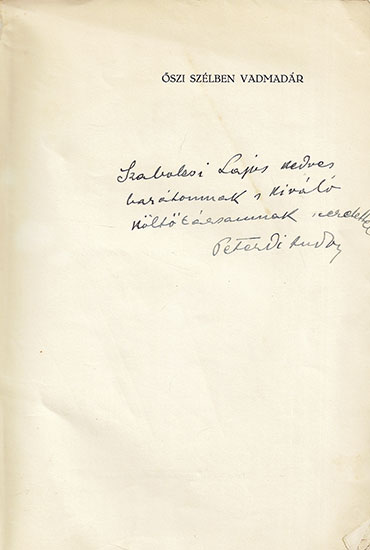 ŐSZI SZÉLBEN VADMADÁR
Szabolcsi Lajos kedves
barátomnak s kiváló
költőtársamnak szeretettel
Peterdi Andor